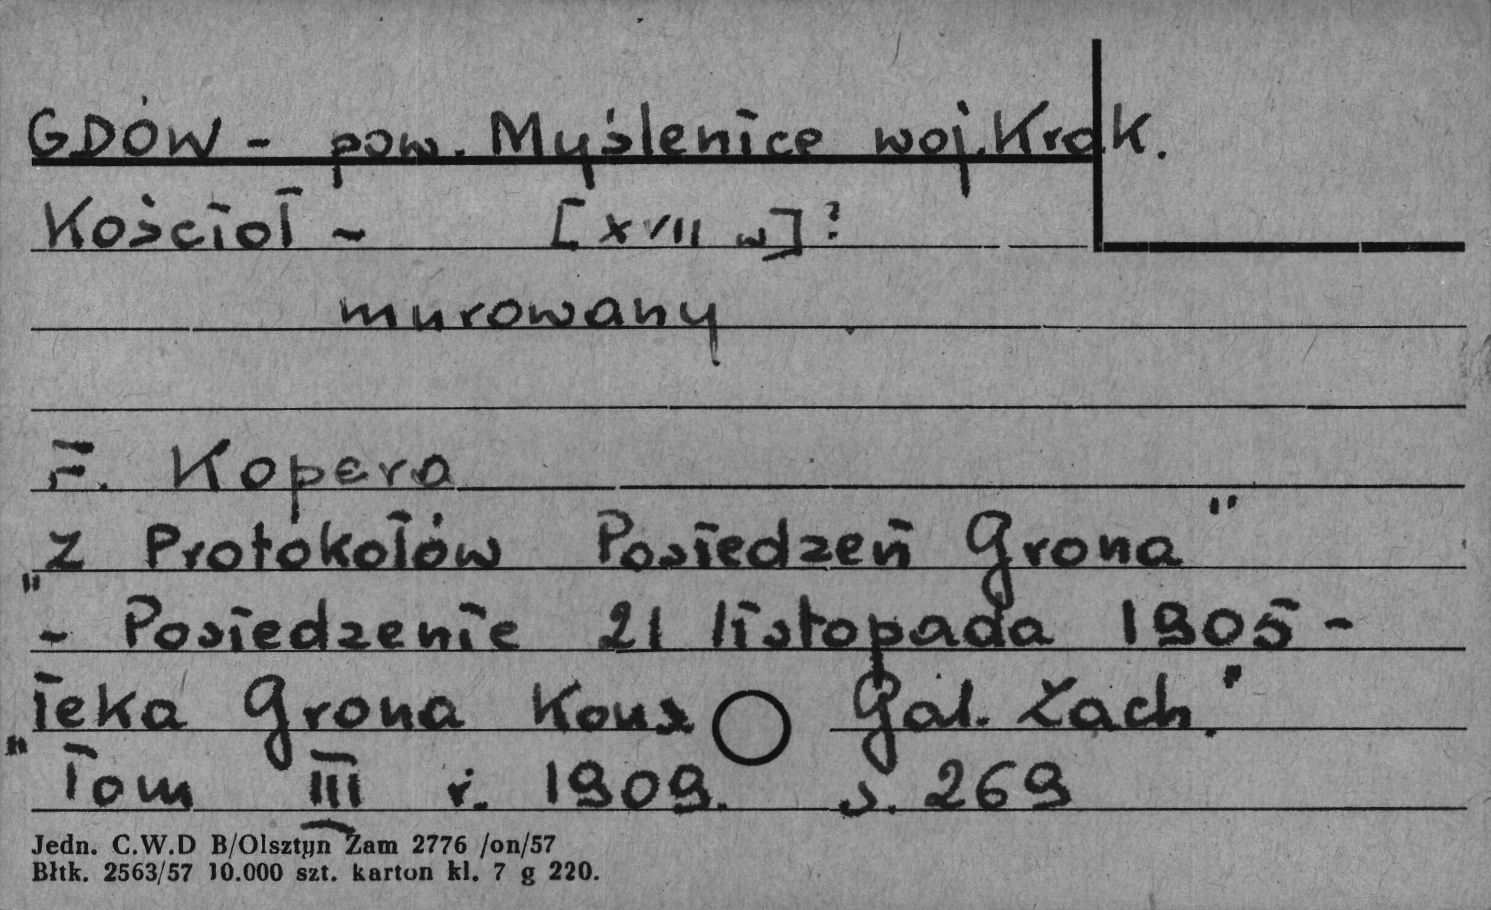 GDÓW - pow. Myślenice woj. Krak.
Kościół - [XVII w]?
murowany
F. Kopera
"Z Protokołów Posiedzeń Grona"
- Posiedzenie 21 listopada 1905 -
"Teka Grona Kons Gal. Zach."
Tom III r. 1909. s. 269
Jedn. C.W.D B/Olsztyn Zam 2776 /on/57
Błtk. 2563/57 10.000 szt. karton kl. 7 g 220.